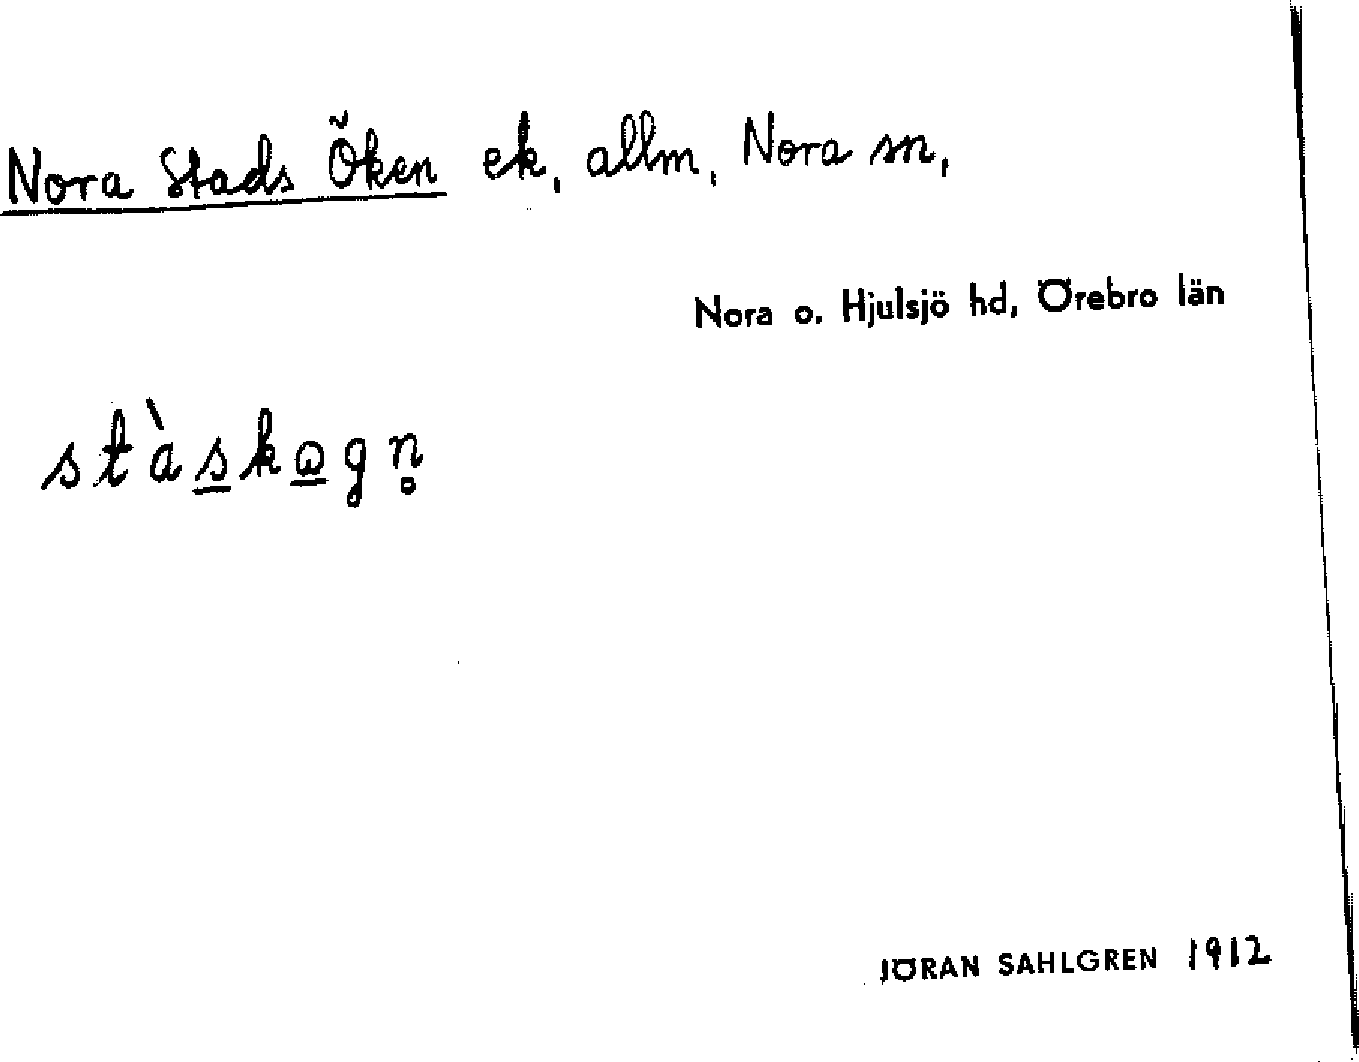 Nora Stads Öken ek, allm, Nora sn,
Nora o. Hjulsjö hd, Örebro län
stàs̲kɷ̲gn̥
JÖRAN SAHLGREN 1912